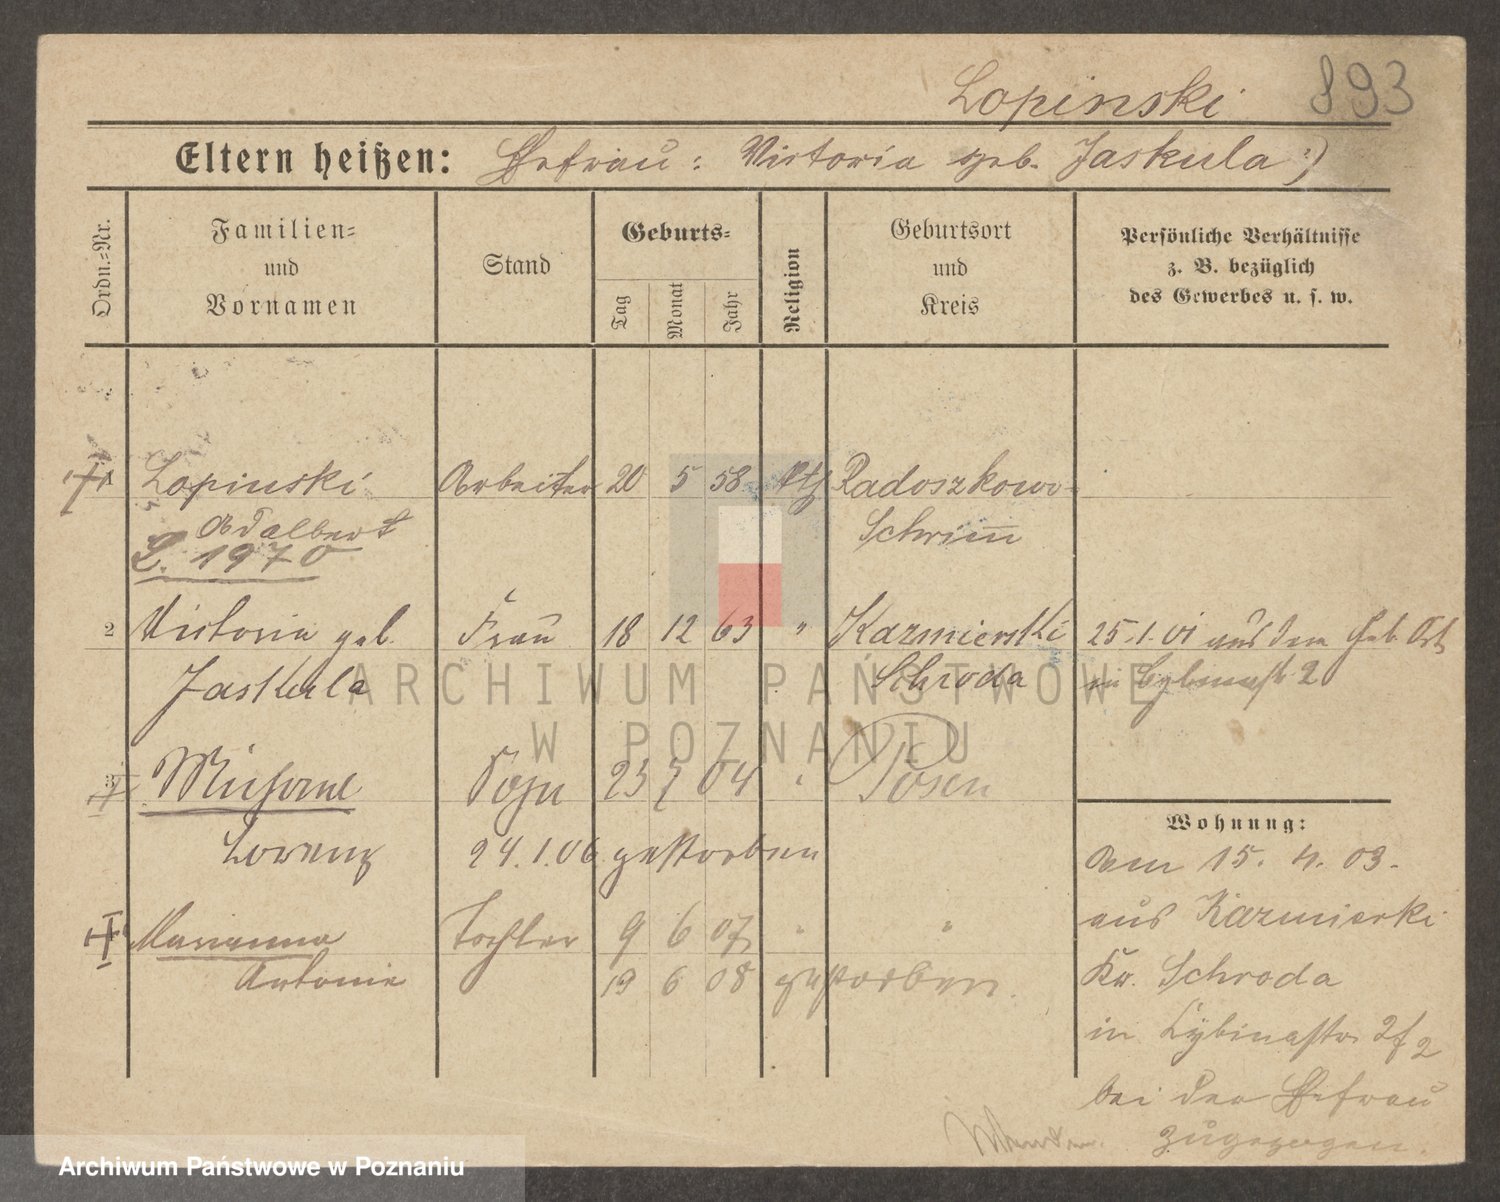 Lopinski 893
Eltern heißen: Ehefrau: Victoria geb. Jaskula)
Ordn.-Nr.
Familien-
und
Vornamen
Stand
Geburts-
Tag
Monat
Jahr
Religion
Geburtsort
und
Kreis
Persönliche Verhältnisse
z. B. bezüglich
des Gewerbes u. s. w.
1 Lopinski Arbeiter 20 5 58 kth Radoszkowo-
Adalbert Schrim̅
L. 1970
2 Victoria geb. Frau 18 12 63 " Kazmierski 25.1.01 aus dem Geb. Ort
Jaskula Schroda in Cybinastr 2
3 Sohn 23 7 04 " Posen
Lorenz 24.1.06 gestorben
Marianna Tochter 9 6 07 " "
Antonie 19 6 08 gestorben.
Wohnung:
Am 15. 4. 03.
aus Kazmierski
Kr. Schroda
in Cybinastr 2f2
bei der Ehefrau
zugezogen.
ARCHIWUM PAŃSTWOWE
W POZNANIU
Archiwum Państwowe w Poznaniu